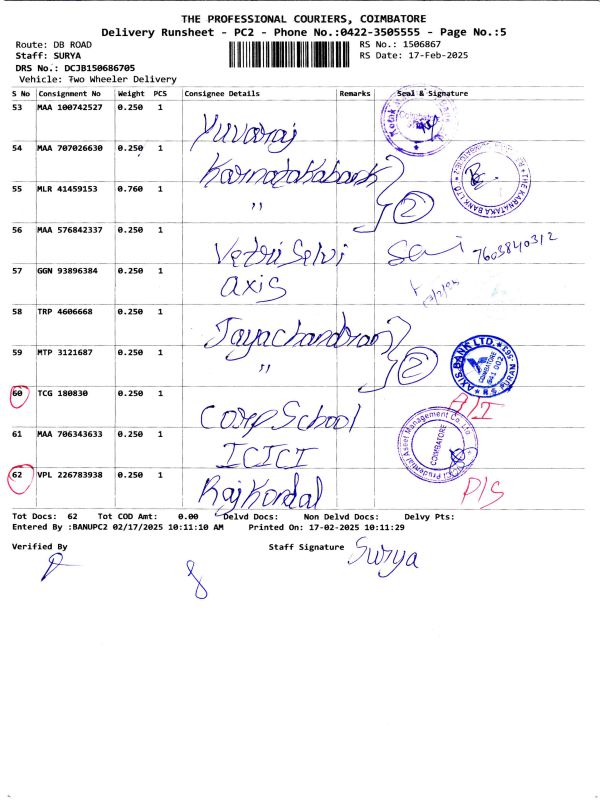 THE PROFESSIONAL COURIERS, COIMBATORE
Delivery Runsheet - PC2 - Phone No.:0422-3505555 - Page No.:5
Route: DB ROAD RS No.: 1506867
Staff: SURYA RS Date: 17-Feb-2025
DRS No.: DCJB150686705
Vehicle: Two Wheeler Delivery
S No Consignment No Weight PCS Consignee Details Remarks Seal & Signature
53 MAA 100742527 0.250 1 Yuvaraj
54 MAA 707026630 0.250 1 Karnatakabank
55 MLR 41459153 0.760 1 " 2
THE KARNATAKA BANK LTD
56 MAA 576842337 0.250 1 Vetri Selvi Sai 7603840312
57 GGN 93896384 0.250 1 axis
58 TRP 4606668 0.250 1 Jayachandran
59 MTP 3121687 0.250 1 " 2
AXIS BANK LTD. COIMBATORE 641 002
60 TCG 180830 0.250 1 Corp School
61 MAA 706343633 0.250 1 ICICI
Prudential Asset Management Co. Ltd. COIMBATORE
62 VPL 226783938 0.250 1 Raj Kondal P/S
Tot Docs: 62 Tot COD Amt: 0.00 Delvd Docs: Non Delvd Docs: Delvy Pts:
Entered By :BANUPC2 02/17/2025 10:11:10 AM Printed On: 17-02-2025 10:11:29
Verified By Staff Signature Surya